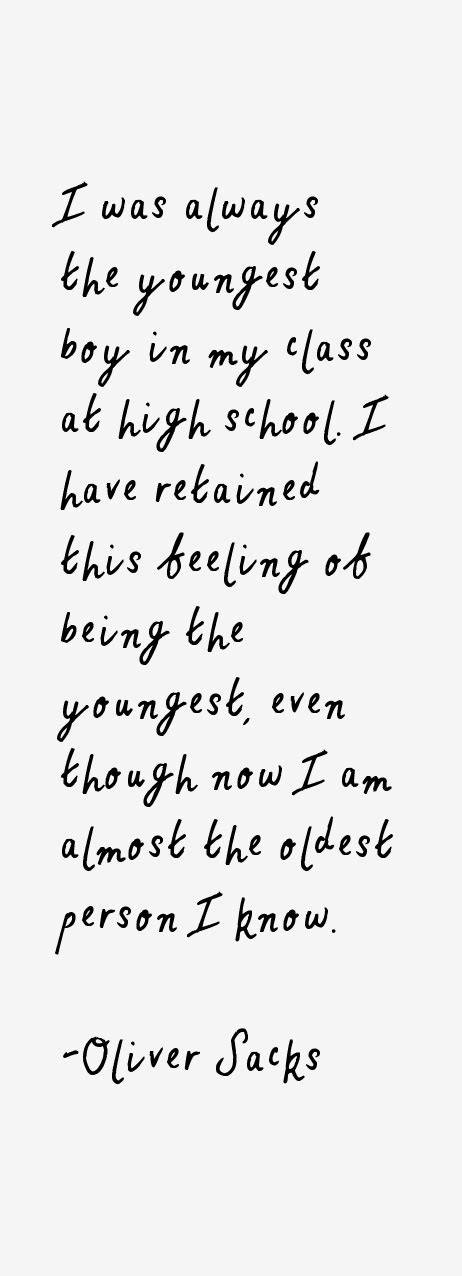 I was always
the youngest
boy in my class
at high school. I
have retained
this feeling of
being the
youngest, even
though now I am
almost the oldest
person I know.
-Oliver Sacks